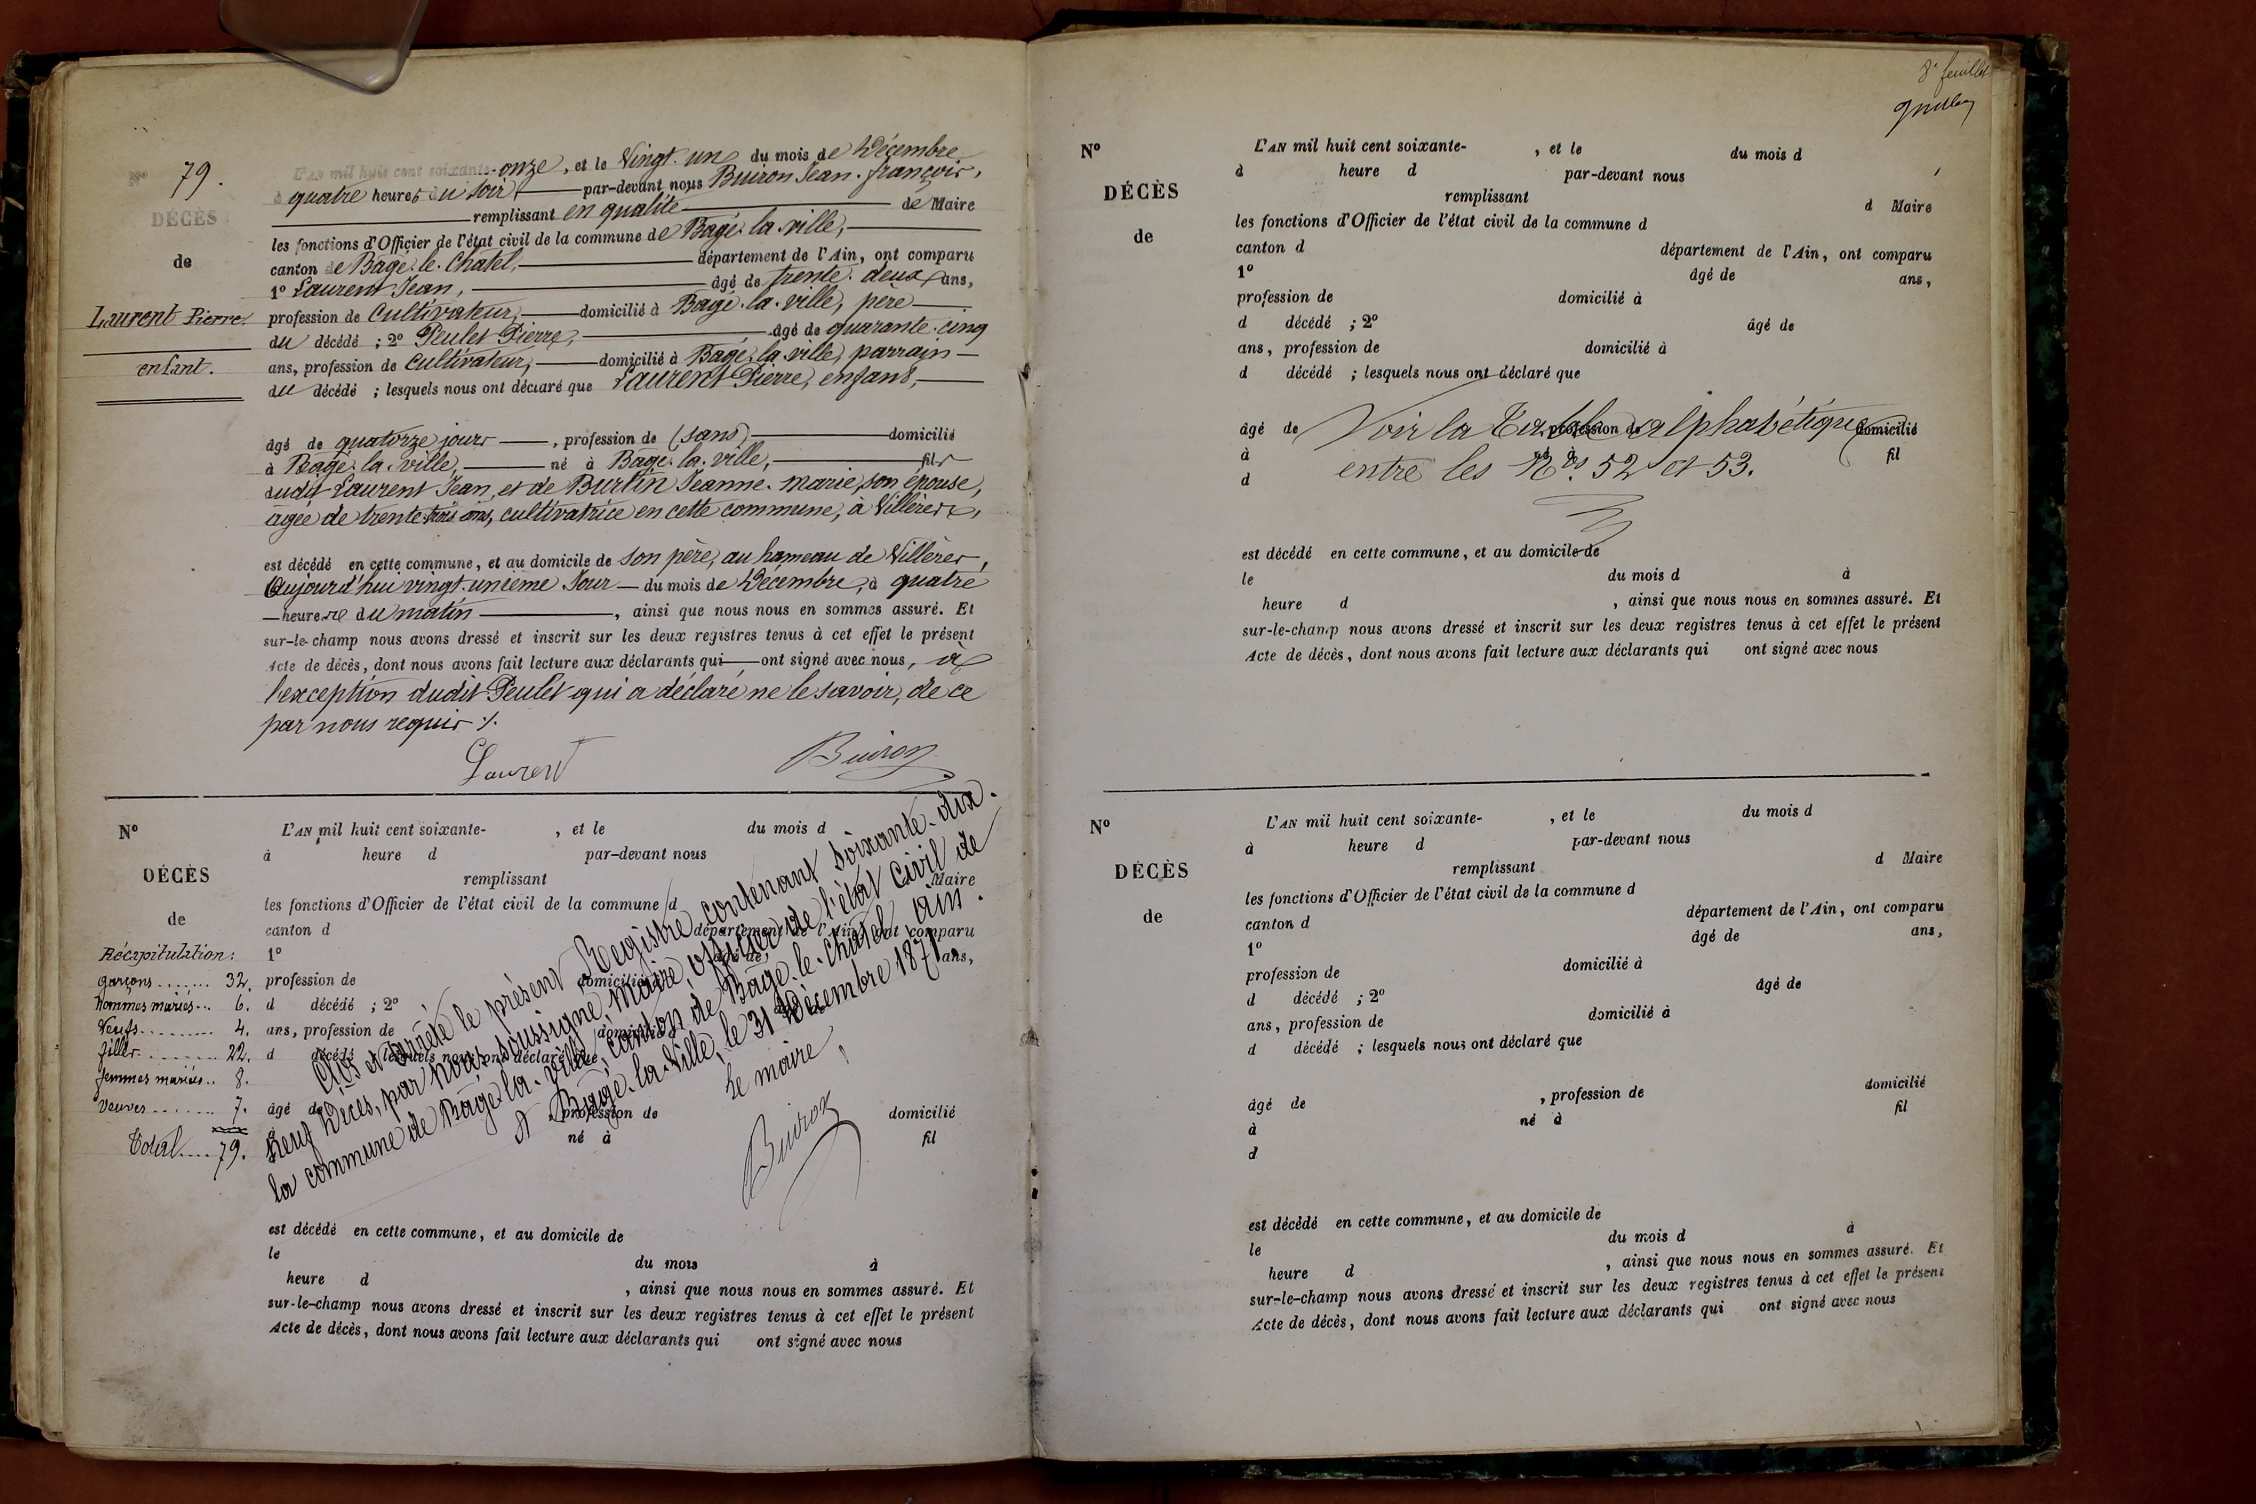 Nº 79.
DÉCÈS
de
Laurent Pierre.
enfant.
L'AN mil huit cent soixante-onze, et le Vingt-un du mois de Décembre
à quatre heures du soir, par-devant nous Buiron Jean-françois,
remplissant en qualité de Maire
les fonctions d'Officier de l'état civil de la commune de Bagé-la-ville,
canton de Bagé-le-Chatel, département de l'Ain, ont comparu
1º Laurent Jean, âgé de trente-deux ans,
profession de Cultivateur, domicilié à Bagé-la-ville, père
du décédé ; 2º Peulet Pierre, âgé de quarante-cinq
ans, profession de Cultivateur, domicilié à Bagé-la-ville, parrain
du décédé ; lesquels nous ont déclaré que Laurent Pierre, enfant,
âgé de quatorze jours, profession de (sans) domicilié
à Bagé-la-ville, né à Bagé-la-ville, fils
dudit Laurent Jean, et de Burtin Jeanne-marie, son épouse,
âgée de trente-trois ans, cultivatrice en cette commune, à Villères,
est décédé en cette commune, et au domicile de son père, au hameau de Villères,
Aujourd'hui vingt-unième Jour du mois de Décembre, à quatre
heures du matin, ainsi que nous nous en sommes assuré. Et
sur-le-champ nous avons dressé et inscrit sur les deux registres tenus à cet effet le présent
Acte de décès, dont nous avons fait lecture aux déclarants qui ont signé avec nous, à
l'exception dudit Peulet qui a déclaré ne le savoir, de ce
par nous requis ./.
Laurent Buiron
Nº
DÉCÈS
de
Récapitulation:
garçons ....... 32.
Hommes mariés... 6.
Veufs ......... 4.
filles ........ 22.
femmes mariées.. 8.
Veuves ........ 7.
Total .... 79.
L'AN mil huit cent soixante- , et le du mois d
à heure d par-devant nous
remplissant Maire
les fonctions d'Officier de l'état civil de la commune d
canton d département de l'Ain, ont comparu
1º âgé de ans,
profession de domicilié à
d décédé ; 2º âgé de
ans, profession de domicilié à
d décédé ; lesquels nous ont déclaré que
âgé de , profession de domicilié
né à fil
Clos et arrêté le présent Registre contenant soixante-dix-
neuf Décès, par nous soussigné, maire, officier de l'état civil de
la commune de Bagé-la-ville, canton de Bagé-le-Chatel Ain.
A Bagé-la-Ville, le 31 Décembre 1871.
Le maire,
Buiron
est décédé en cette commune, et au domicile de
le du mois à
heure d , ainsi que nous nous en sommes assuré. Et
sur-le-champ nous avons dressé et inscrit sur les deux registres tenus à cet effet le présent
Acte de décès, dont nous avons fait lecture aux déclarants qui ont signé avec nous
8e feuillet
Nº
DÉCÈS
de
L'AN mil huit cent soixante- , et le du mois d
à heure d par-devant nous ,
remplissant d Maire
les fonctions d'Officier de l'état civil de la commune d
canton d département de l'Ain, ont comparu
1º âgé de ans,
profession de domicilié à
d décédé ; 2º âgé de
ans, profession de domicilié à
d décédé ; lesquels nous ont déclaré que
âgé de profession de domicilié
à né à fil
d
Voir la Table alphabétique
entre les Nos 52 et 53.
est décédé en cette commune, et au domicile de
le du mois d à
heure d , ainsi que nous nous en sommes assuré. Et
sur-le-champ nous avons dressé et inscrit sur les deux registres tenus à cet effet le présent
Acte de décès, dont nous avons fait lecture aux déclarants qui ont signé avec nous
Nº
DÉCÈS
de
L'AN mil huit cent soixante- , et le du mois d
à heure d par-devant nous
remplissant d Maire
les fonctions d'Officier de l'état civil de la commune d
canton d département de l'Ain, ont comparu
1º âgé de ans,
profession de domicilié à
d décédé ; 2º âgé de
ans, profession de domicilié à
d décédé ; lesquels nous ont déclaré que
âgé de , profession de domicilié
à né à fil
d
est décédé en cette commune, et au domicile de
le du mois d à
heure d , ainsi que nous nous en sommes assuré. Et
sur-le-champ nous avons dressé et inscrit sur les deux registres tenus à cet effet le présent
Acte de décès, dont nous avons fait lecture aux déclarants qui ont signé avec nous